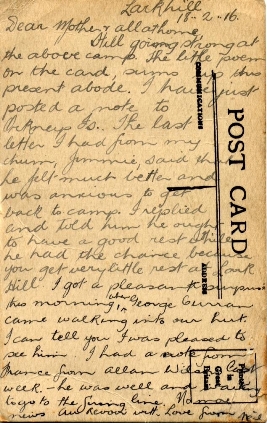 Larkhill
18-2-16.
Dear Mother & all at home,
Still going strong at
the above camp. The little poem
on the card, sums up this
present abode. I have just
posted a note to
Orkneys Is. The last
letter I had from my
chum, Jimmie, said that
he felt much better and
was anxious to get
back to camp. I replied
and told him he ought
to have a good rest while
he had the chance because
you get very little rest at Lark
Hill. I got a pleasant surprise
this morning when George Curran
came walking into our hut.
I can tell you I was pleased to
see him I had a note from
France from Allan Wilson last
week. He was well and
to go to the firing line. No more
news Au Revoir with Love from
POST CARD
COMMUNICATIONS
ADDRESS